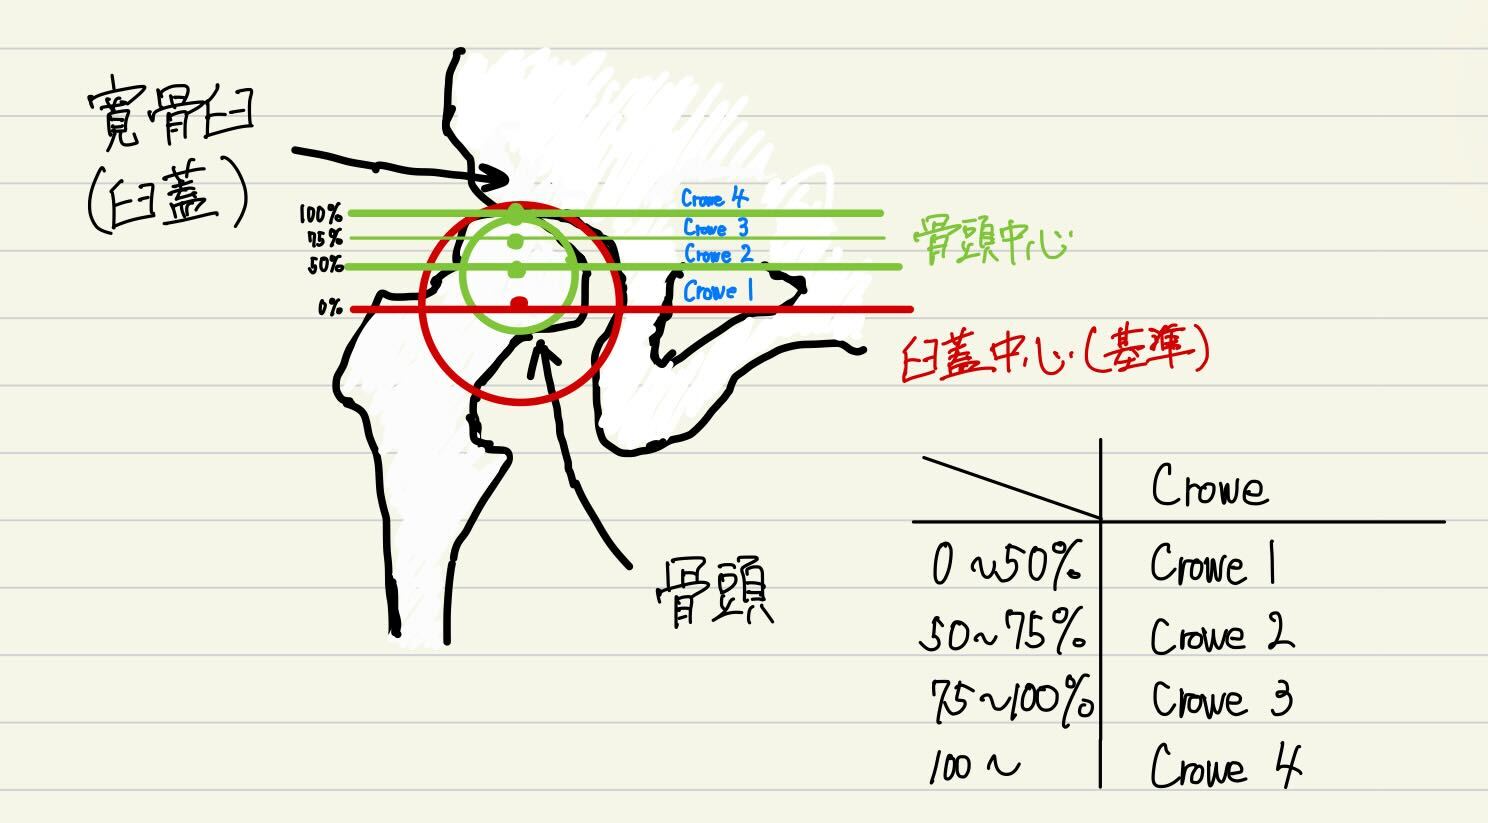 寛骨臼
(臼蓋)
100%
75%
50%
0%
Crowe 4
Crowe 3
Crowe 2
Crowe 1
骨頭中心
臼蓋中心(基準)
骨頭
Crowe
0~50% Crowe 1
50~75% Crowe 2
75~100% Crowe 3
100~ Crowe 4